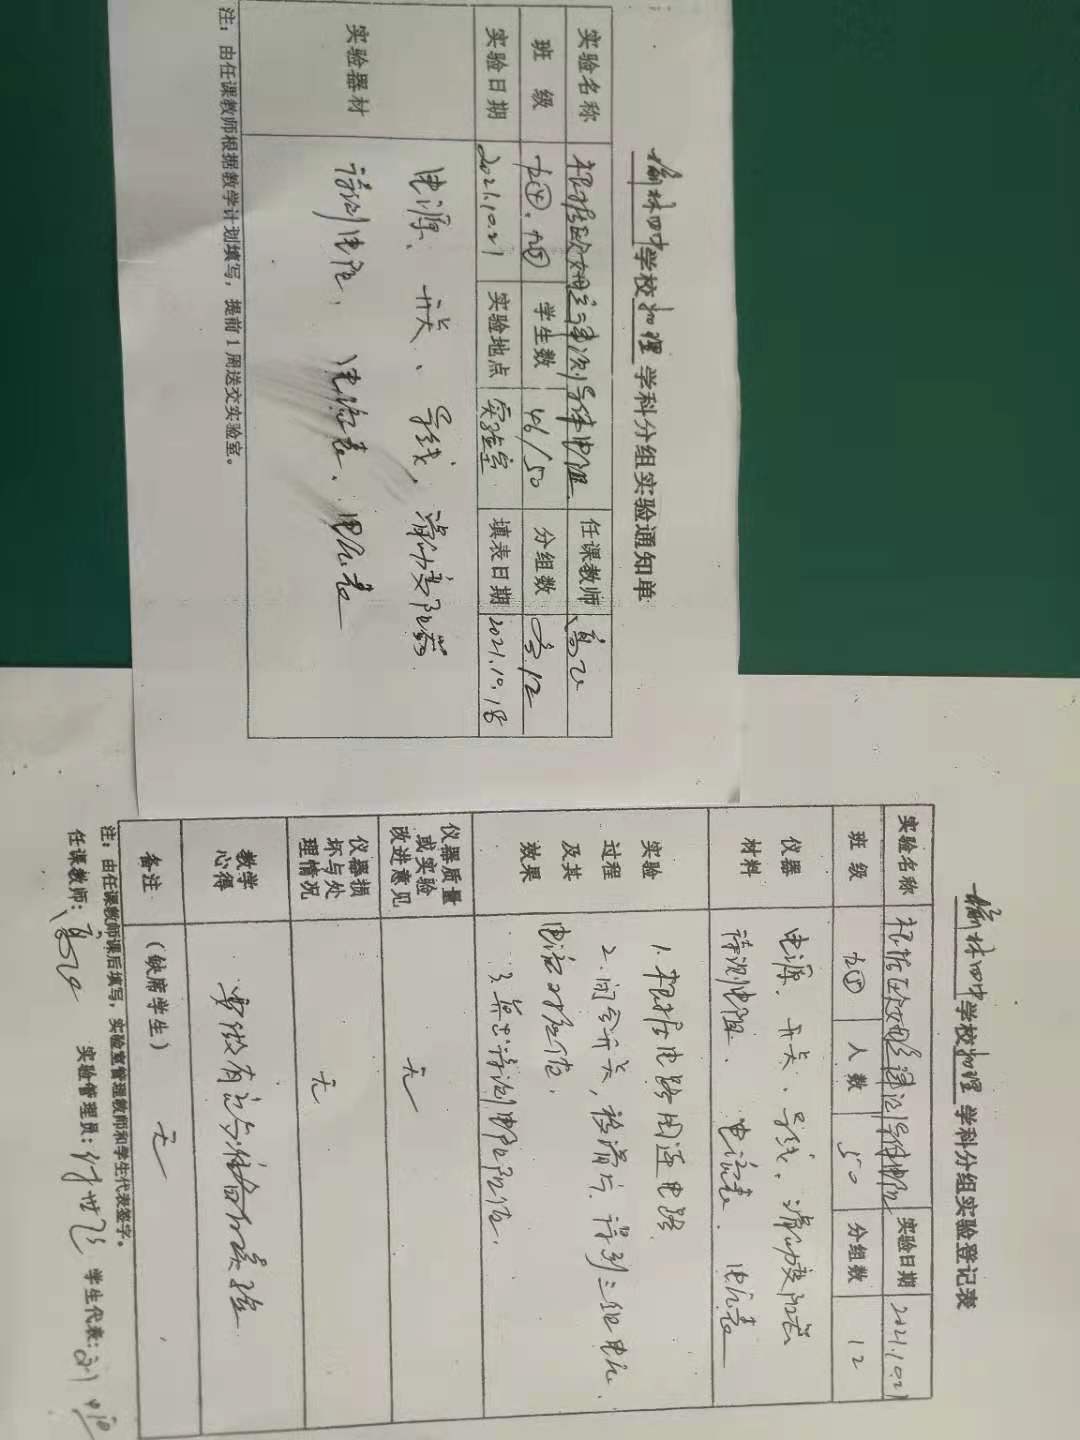 榆林四中学校物理学科分组实验通知单
实验名称 根据欧姆定律测导体电阻 任课教师
班级 九④、九⑤ 学生数 46/50 分组数 各12
实验日期 2021.10.21 实验地点 实验室 填表日期 2021.10.18
实验器材 电源、开关、导线、滑动变阻器
待测电阻、电流表、电压表
注：由任课教师根据教学计划填写，提前1周送交实验室。
榆林四中学校物理学科分组实验登记表
实验名称 根据欧姆定律测导体电阻 实验日期 2021.10.21
班级 九⑤ 人数 50 分组数 12
仪器材料 电源、开关、导线、滑动变阻器
待测电阻、电流表、电压表
实验过程及其效果 1.根据电路图连电路
2.闭合开关，移滑片，得到三组电压、
电流对应值.
3.算出待测电阻阻值.
仪器质量或实验改进意见 无
仪器损坏与处理情况 无
教学心得 要做有
备注 （缺席学生） 无
注：由任课教师课后填写，实验室管理教师和学生代表签字。
任课教师： 实验管理员： 学生代表：